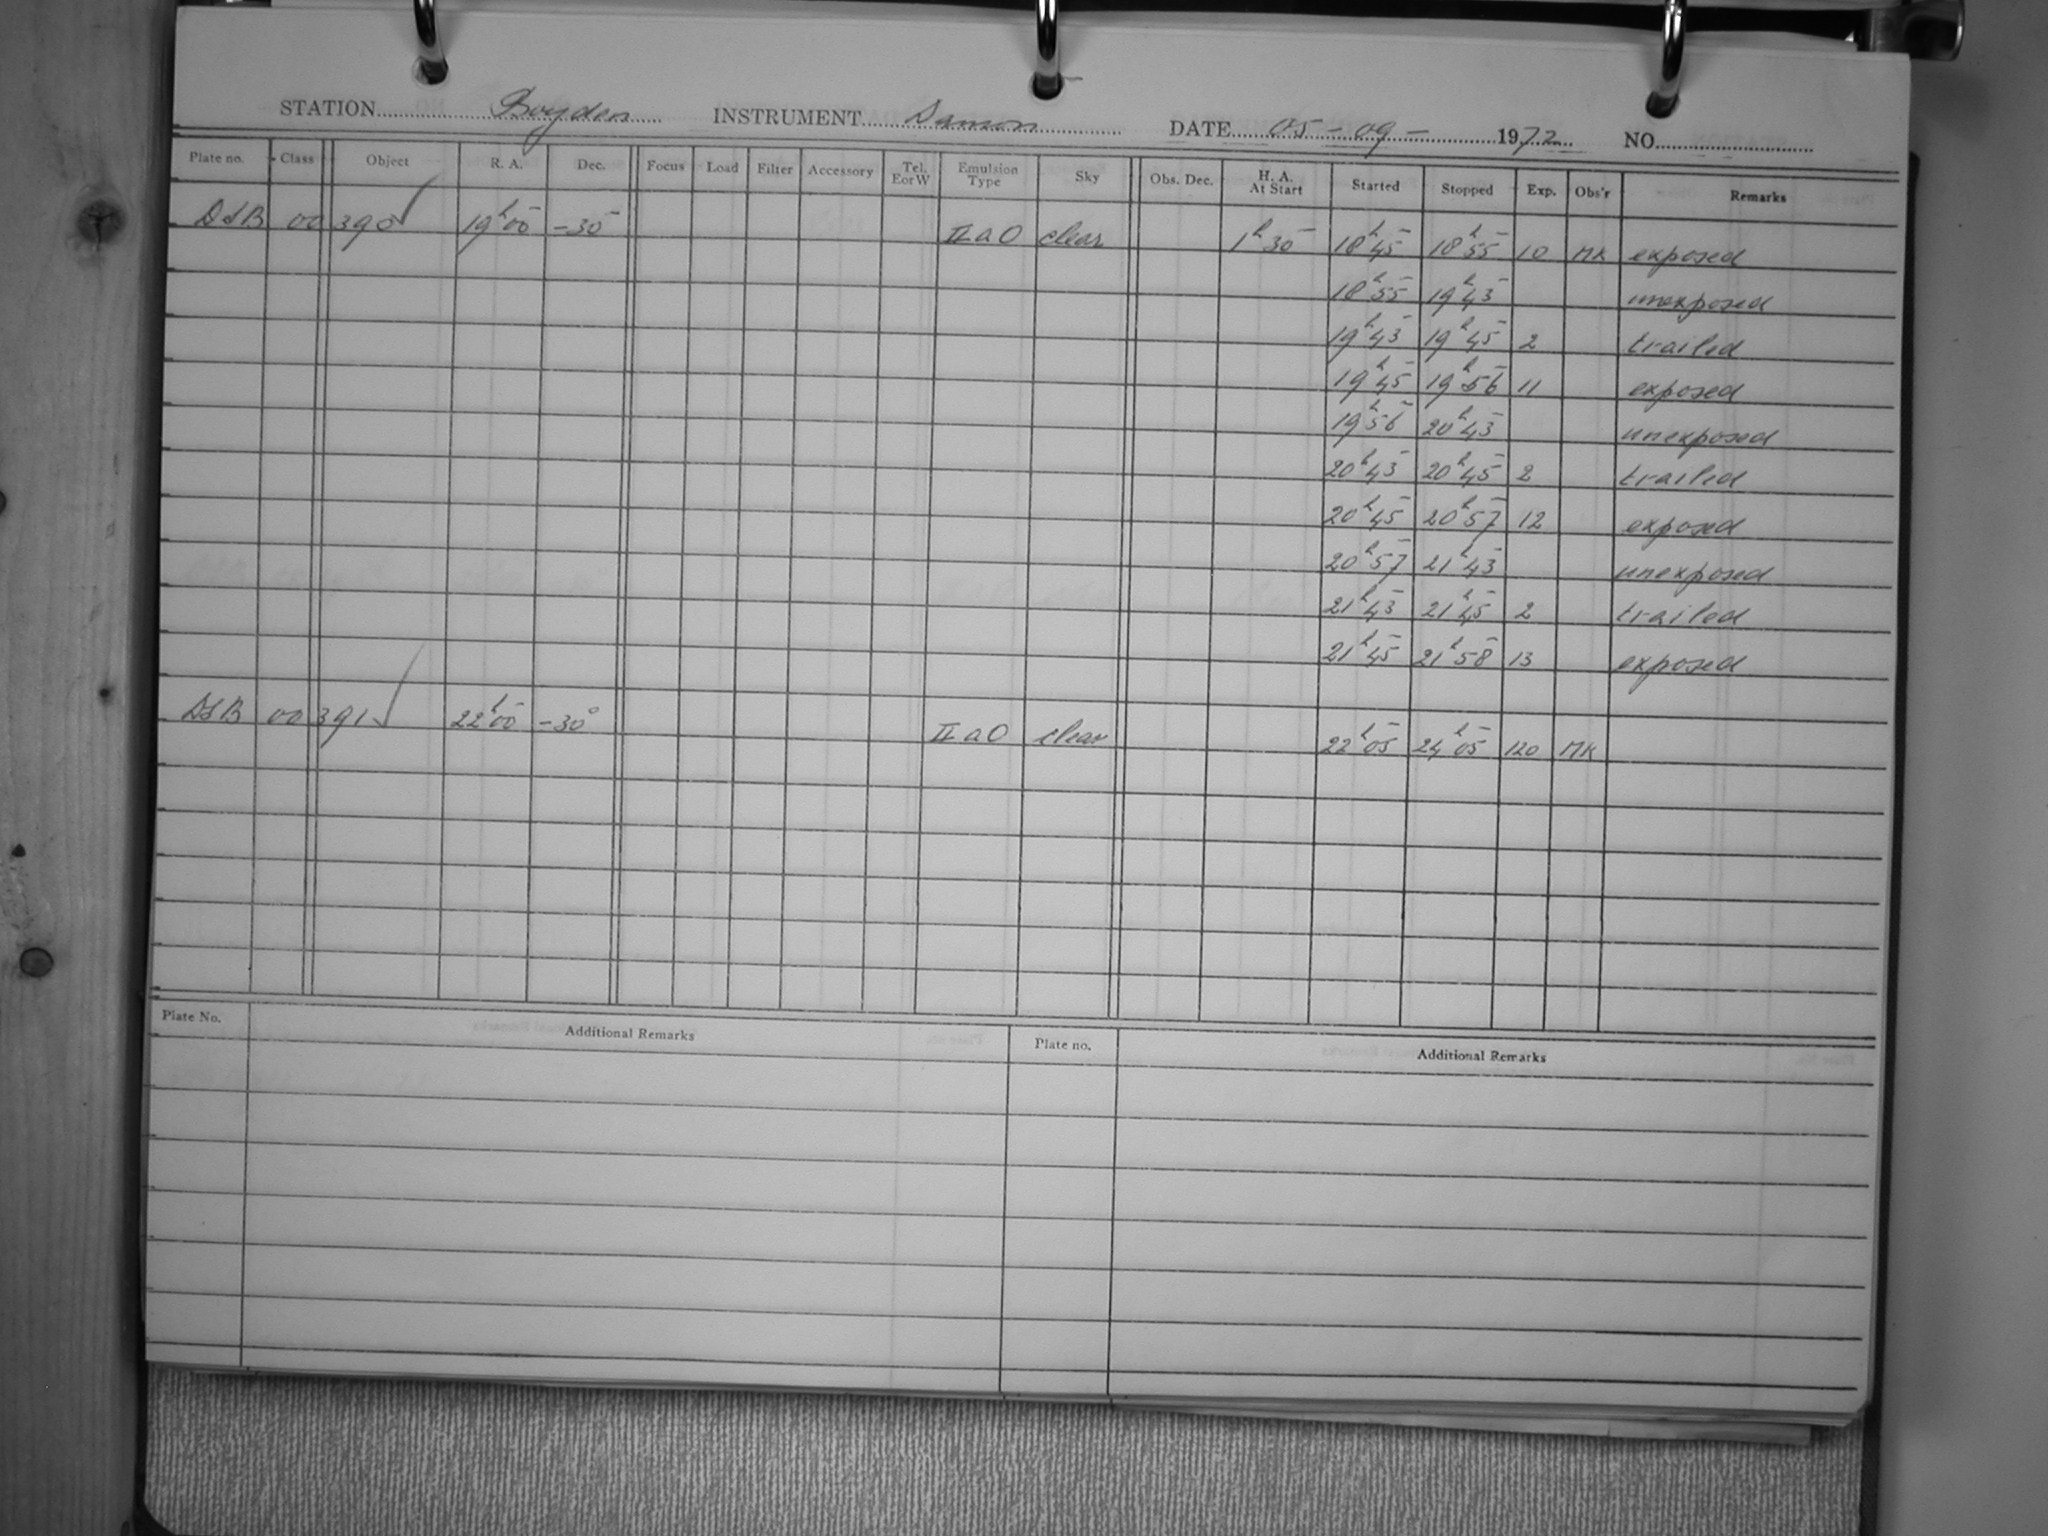 STATION Boyden INSTRUMENT Damon DATE 05-09-1972 NO
Plate no. Class Object R. A. Dec. Focus Load Filter Accessory Tel. E or W Emulsion Type Sky Obs. Dec. H. A. At Start Started Stopped Exp. Obs'r Remarks
DSB 00 390 ✓ 19h00 -30 IIaO clear 1h30 18h45 18h55 10 MK exposed
18h55 19h43 unexposed
19h43 19h45 2 trailed
19h45 19h56 11 exposed
19h56 20h43 unexposed
20h43 20h45 2 trailed
20h45 20h57 12 exposed
20h57 21h43 unexposed
21h43 21h45 2 trailed
21h45 21h58 13 exposed
DSB 00 391 ✓ 22h00 -30° IIaO clear 22h05 24h05 120 MK
Plate No. Additional Remarks Plate no. Additional Remarks